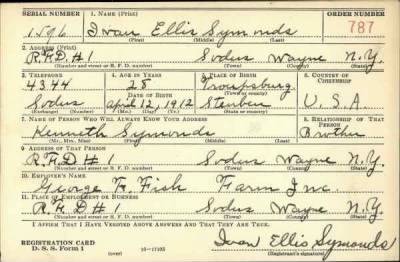 SERIAL NUMBER 1. NAME (Print) ORDER NUMBER
1596 Ivan Ellis Symonds 787
(First) (Middle) (Last)
2. ADDRESS (Print)
R.F.D #1 Sodus Wayne N.Y.
(Number and street or R. F. D. number) (Town) (County) (State)
3. TELEPHONE 4. AGE IN YEARS 5. PLACE OF BIRTH 6. COUNTRY OF CITIZENSHIP
4344 28 Troupsburg
DATE OF BIRTH (Town or county)
Sodus April 12, 1912 Steuben U.S.A.
(Exchange) (Number) (Mo.) (Day) (Yr.) (State or country)
7. NAME OF PERSON WHO WILL ALWAYS KNOW YOUR ADDRESS 8. RELATIONSHIP OF THAT PERSON
Kenneth Symonds Brother
(Mr., Mrs., Miss) (First) (Middle) (Last)
9. ADDRESS OF THAT PERSON
R.F.D #1 Sodus Wayne N.Y.
(Number and street or R. F. D. number) (Town) (County) (State)
10. EMPLOYER'S NAME
George F. Fish Farm Inc.
11. PLACE OF EMPLOYMENT OR BUSINESS
R.F.D #1 Sodus Wayne N.Y.
(Number and street or R. F. D. number) (Town) (County) (State)
I AFFIRM THAT I HAVE VERIFIED ABOVE ANSWERS AND THAT THEY ARE TRUE.
REGISTRATION CARD
D. S. S. Form 1 (over) Ivan Ellis Symonds
(Registrant's signature)